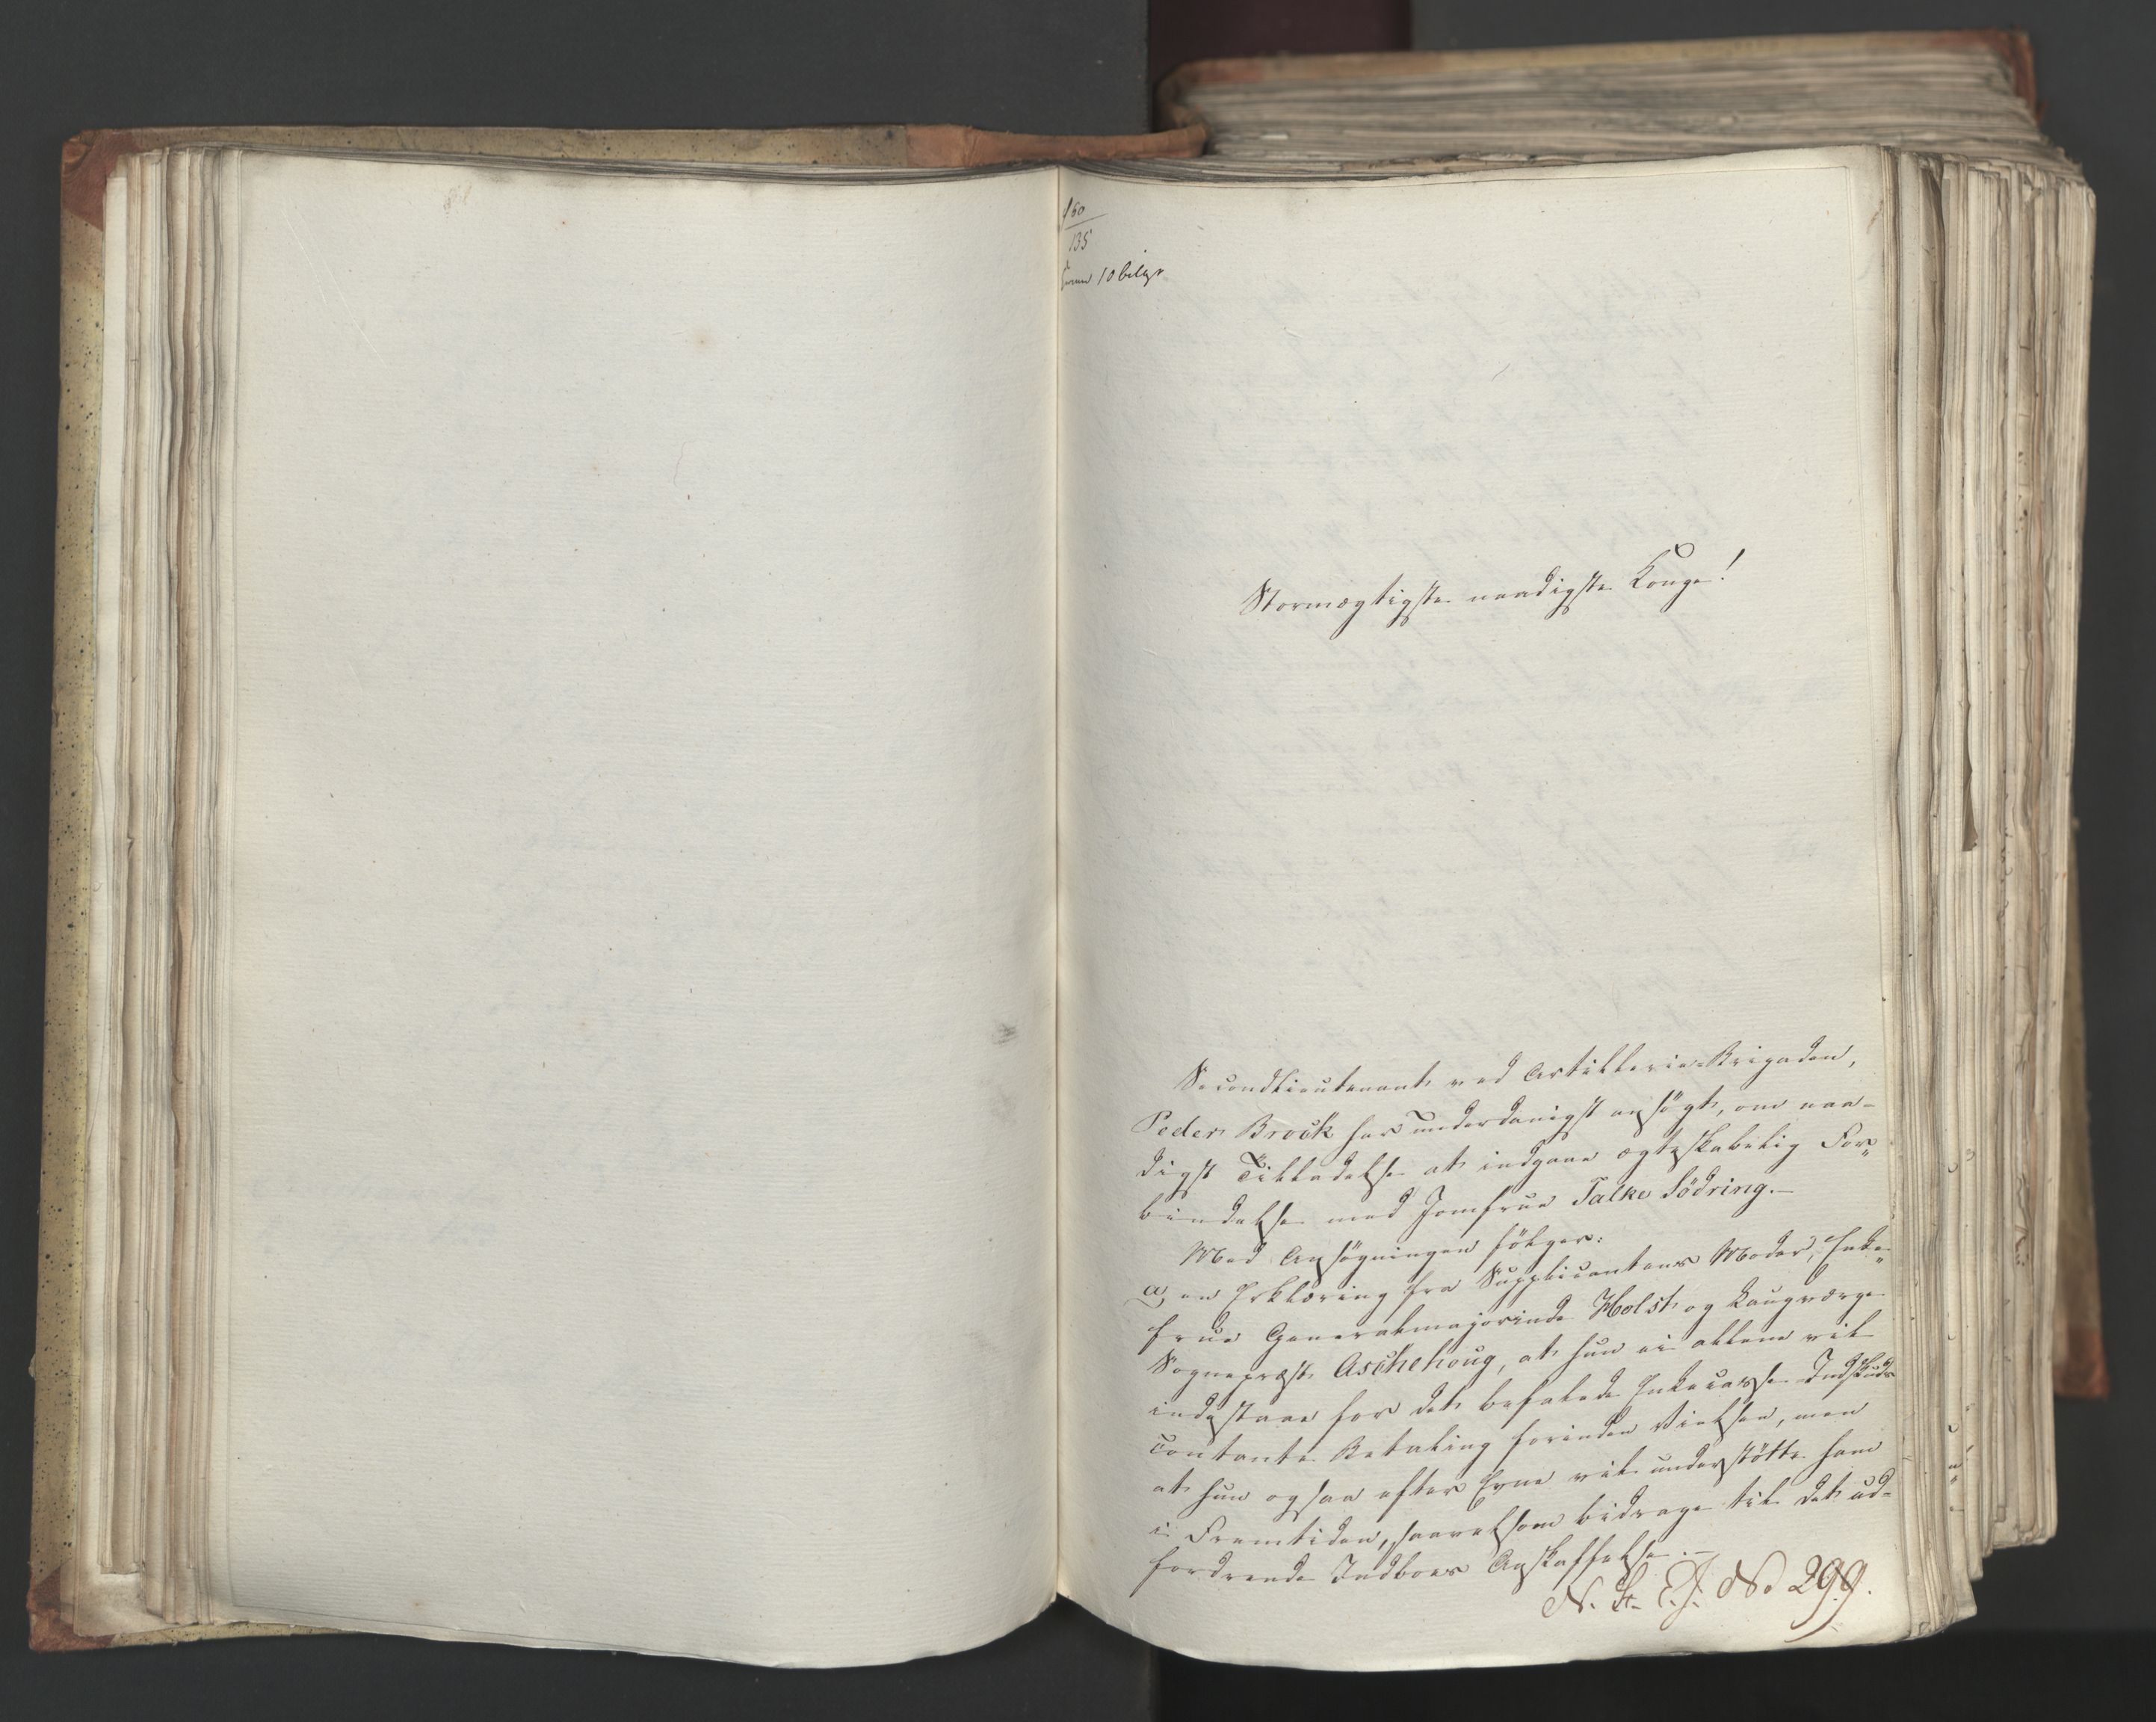 160
135
10 bilag
Stormægtigste naadigste Konge!
Secondlieutenant ved Artillerie-Brigaden,
Peder Brock har underdanigst ansögt, om naa-
digst Tilladelse at indgaae ægteskabelig For„
bindelse med Jomfrue Talke Södring.—
Med Ansögningen fölger:
a, en Erklæring fra Supplicantens Moder, Enke„
frue Generalmajorinde Holst og Laugværge
Sognepræst Aschehoug, at hun ei allene vil
indestaae for det befalede Enkecasse-Indskuds
contante Betaling forinden Vielsen, men
at hun ogsaa efter Evne vil understötte ham
i Fremtiden, saavelsom bidrage til det ud-
fordrende Indboes Anskaffelse.—
N. St. E. J. No 299.